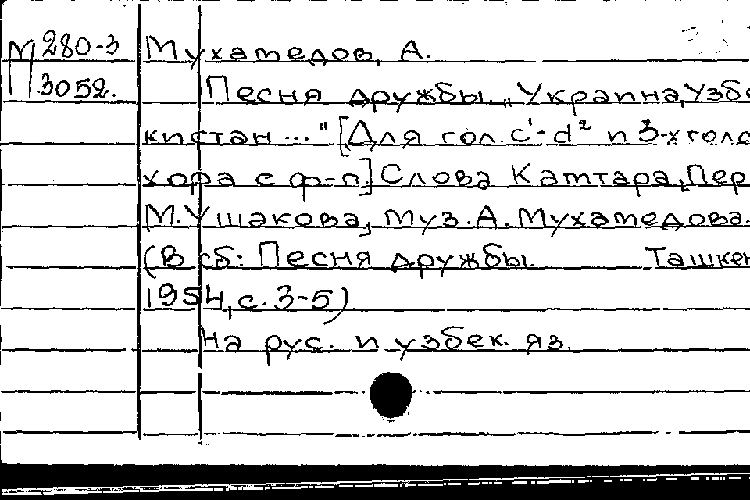 М 280-3 Мухамедов, А.
П 3052. Песня дружбы. „Украина, Узбе
кистан..." [Для гол. c¹-d² и 3-х голо
хора с ф-п.] Слова Камтара, [Пер
М. Ушакова], муз. А. Мухамедова.
(В сб: Песня дружбы. Ташкен
1954, с. 3-5)
На рус. и узбек. яз.